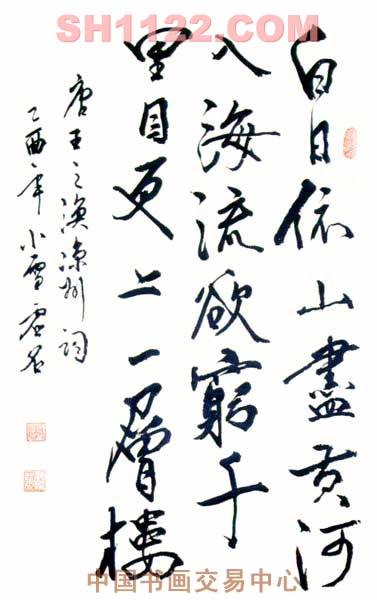 SH1122.COM
白日依山盡黄河
入海流欲窮千
里目更上一層樓
唐王之渙涼州詞
乙酉年小雪
中国书画交易中心